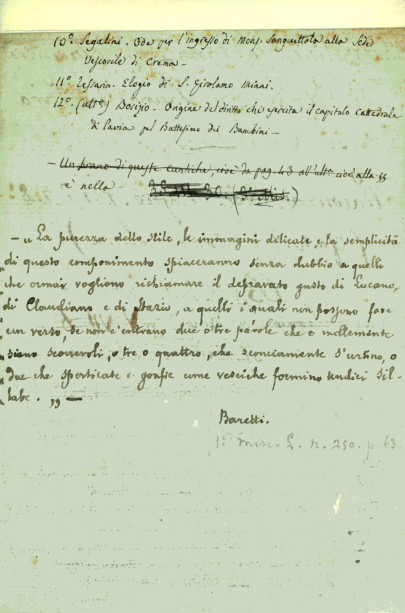 10º Segalini. Ode per l'ingresso di Mons. Sanguettola alla Sede
Vescovile di Crema –
11º Elogio di S. Girolamo Miani.
12º (ultº) Bosizio. Origine del diritto che esercita il capitolo Cattedrale
di Pavia pel Battesimo dei Bambini –
– Un brano di queste cantiche, cioè da pag. 43 all'ultª cioè alla 55
è nella
– „ La purezza dello stile, le immagini dilicate e la semplicità
di questo componimento spiaceranno senza dubbio a quelli
che ormai vogliono richiamare il depravato gusto di Lucano,
di Claudiano e di Stazio, a quelli i quali non possono fare
un verso, se non c'entrano due o tre parole che o mollemente
siano scorrevoli, o tre o quattro, che sconciamente s'urtino, o
due che sperticate e gonfie come vesciche formino undici sil-
labe. „ –
Baretti.
1º Misc. L. n. 250. p. 63.